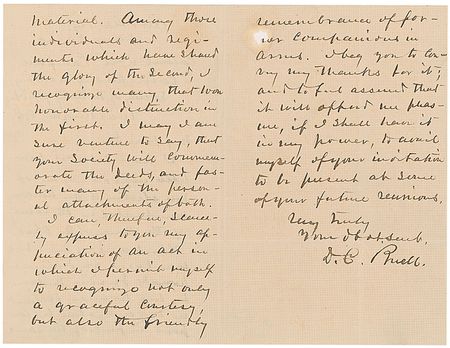 material. Among those
individuals and regi-
ments which have shared
the glory of the second, I
recognize many, that won
honorable distinction in
the first. I may I am
sure venture to say, that
your Society will commem-
orate the deeds, and fos-
ter many of the person-
al attachments of both.
I can, therefore, scarce-
ly express to you my ap-
preciation of an act in
which I permit myself
to recognize not only
a graceful courtesy,
but also the friendly
remembrance of for-
mer companions in
arms. I beg you to con-
vey my thanks for it;
and to feel assured that
it will afford me pleas-
ure, if I shall have it
in my power, to avail
myself of your invitation
to be present at some
of your future reunions.
Very truly
Your obdt. servt.
D. C. Buell.